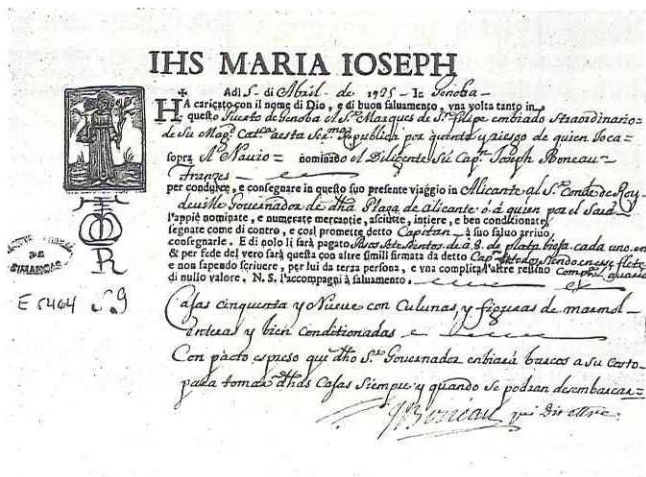 IHS MARIA IOSEPH
Adi 5 - di Abril - de 1725 - In Genoba -
HA caricato con il nome di Dio, e di buon saluamento, vna volta tanto in
questo Puerto de Genoba el Sr. Marques de Sn. Felipe embiado straordinario =
de Su Magd. Catt.ca a esta Ser.ma Republica por quenta y riesgo de quien Toca -
sopra Nauio = nominado el Diligente Su Capn. Joseph Boneau =
Franzes -
per condurre, e consegnare in questo suo presente viaggio in Alicante al Sr. Conde de Roy_
deuille Gouernador de dha Plaza de Alicante ó á quien por el Sará
l'appiè nominate, e numerate mercantie, asciutte, intiere, e ben conditionate,
segnate come di contro, e così promette detto Capitan - à suo saluo arriuo
consegnarle. E di nolo li sarà pagato de à 8. de plata cada uno
& per fede del vero sarà questa con altre simili firmata da detto Capn.
e non sapendo scriuere, per lui da terza persona, e vna complita l'altre restino
di nullo valore. N. S. l'accompagni à saluamento.
DE
SIMANCAS
E 5464 S. 9
Casas cinquenta y Nueue con Culunas, y figuras de marmol -
enteras y bien conditionadas e
Con pacto espreso que dho Sr. Gouernador enbiará barcos a su costo -
para tomar dhas Casas Siempre y quando se podran desembarcar =
J Boneau